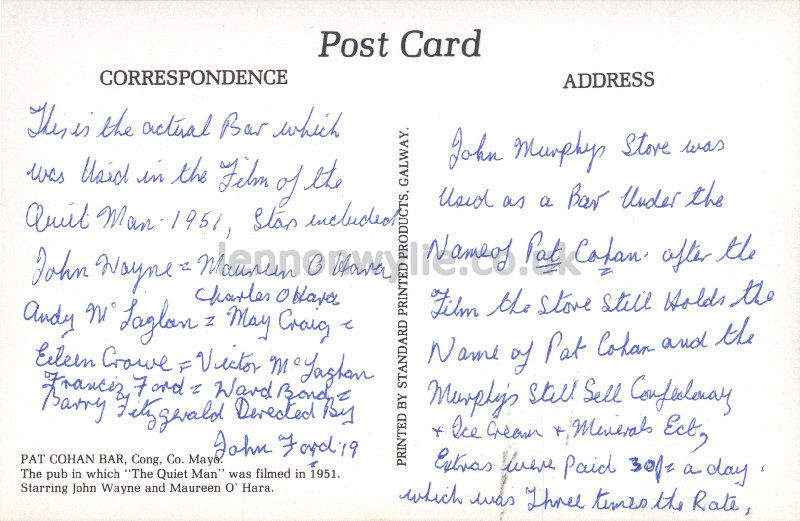 Post Card
CORRESPONDENCE
This is the actual Bar which
was Used in the Film of the
Quiet Man - 1951, Stars included
John Wayne = Maureen O Hara
Charles O Hara
Andy Mc Laglan = May Craig =
Eileen Crowe = Victor McLaghan
Francis Ford = Ward Bond =
Barry Fitzgerald Derected By
John Ford 19
PAT COHAN BAR, Cong, Co. Mayo.
The pub in which "The Quiet Man" was filmed in 1951.
Starring John Wayne and Maureen O' Hara.
PRINTED BY STANDARD PRINTED PRODUCTS, GALWAY.
ADDRESS
John Murphys Store was
Used as a Bar Under the
Name of Pat Cohan. after the
Film the Store Still Holds the
Name of Pat Cohan and the
Murphy's Still Sell Confectionay
+ Ice Cream + Minerals Ect,
Extras were Paid 30/= a day.
which was Three times the Rate.
lennonwylie.co.uk